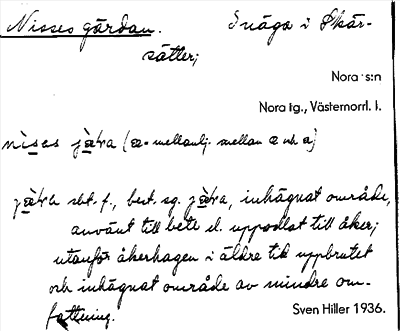 Nisses gärdan. I någa i Skär-
sätter;
Nora s:n
Nora tg., Västernorrl. l.
nises jæra (æ = mellanlj. mellan æ och a)
jæra sbt. f., best. sg. jæra, inhägnat område,
använt till bete el. uppodlat till åker;
utanför åkerhagen i äldre tid uppbrutet
och inhägnat område av mindre om-
fattning.
Sven Hiller 1936.